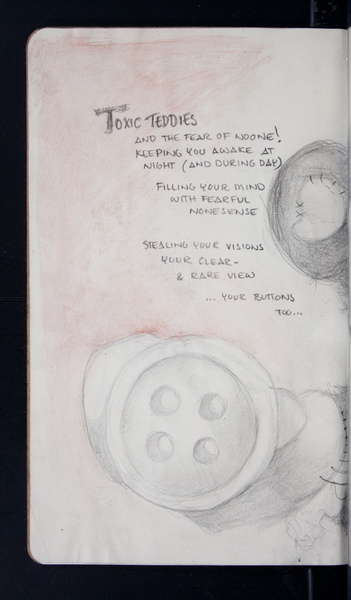 TOXIC TEDDIES
AND THE FEAR OF NOONE!
KEEPING YOU AWAKE AT
NIGHT (AND DURING DAY)
FILLING YOUR MIND
WITH FEARFUL
NONESENSE
STEALING YOUR VISIONS
YOUR CLEAR-
& RARE VIEW
... YOUR BUTTONS
TOO...